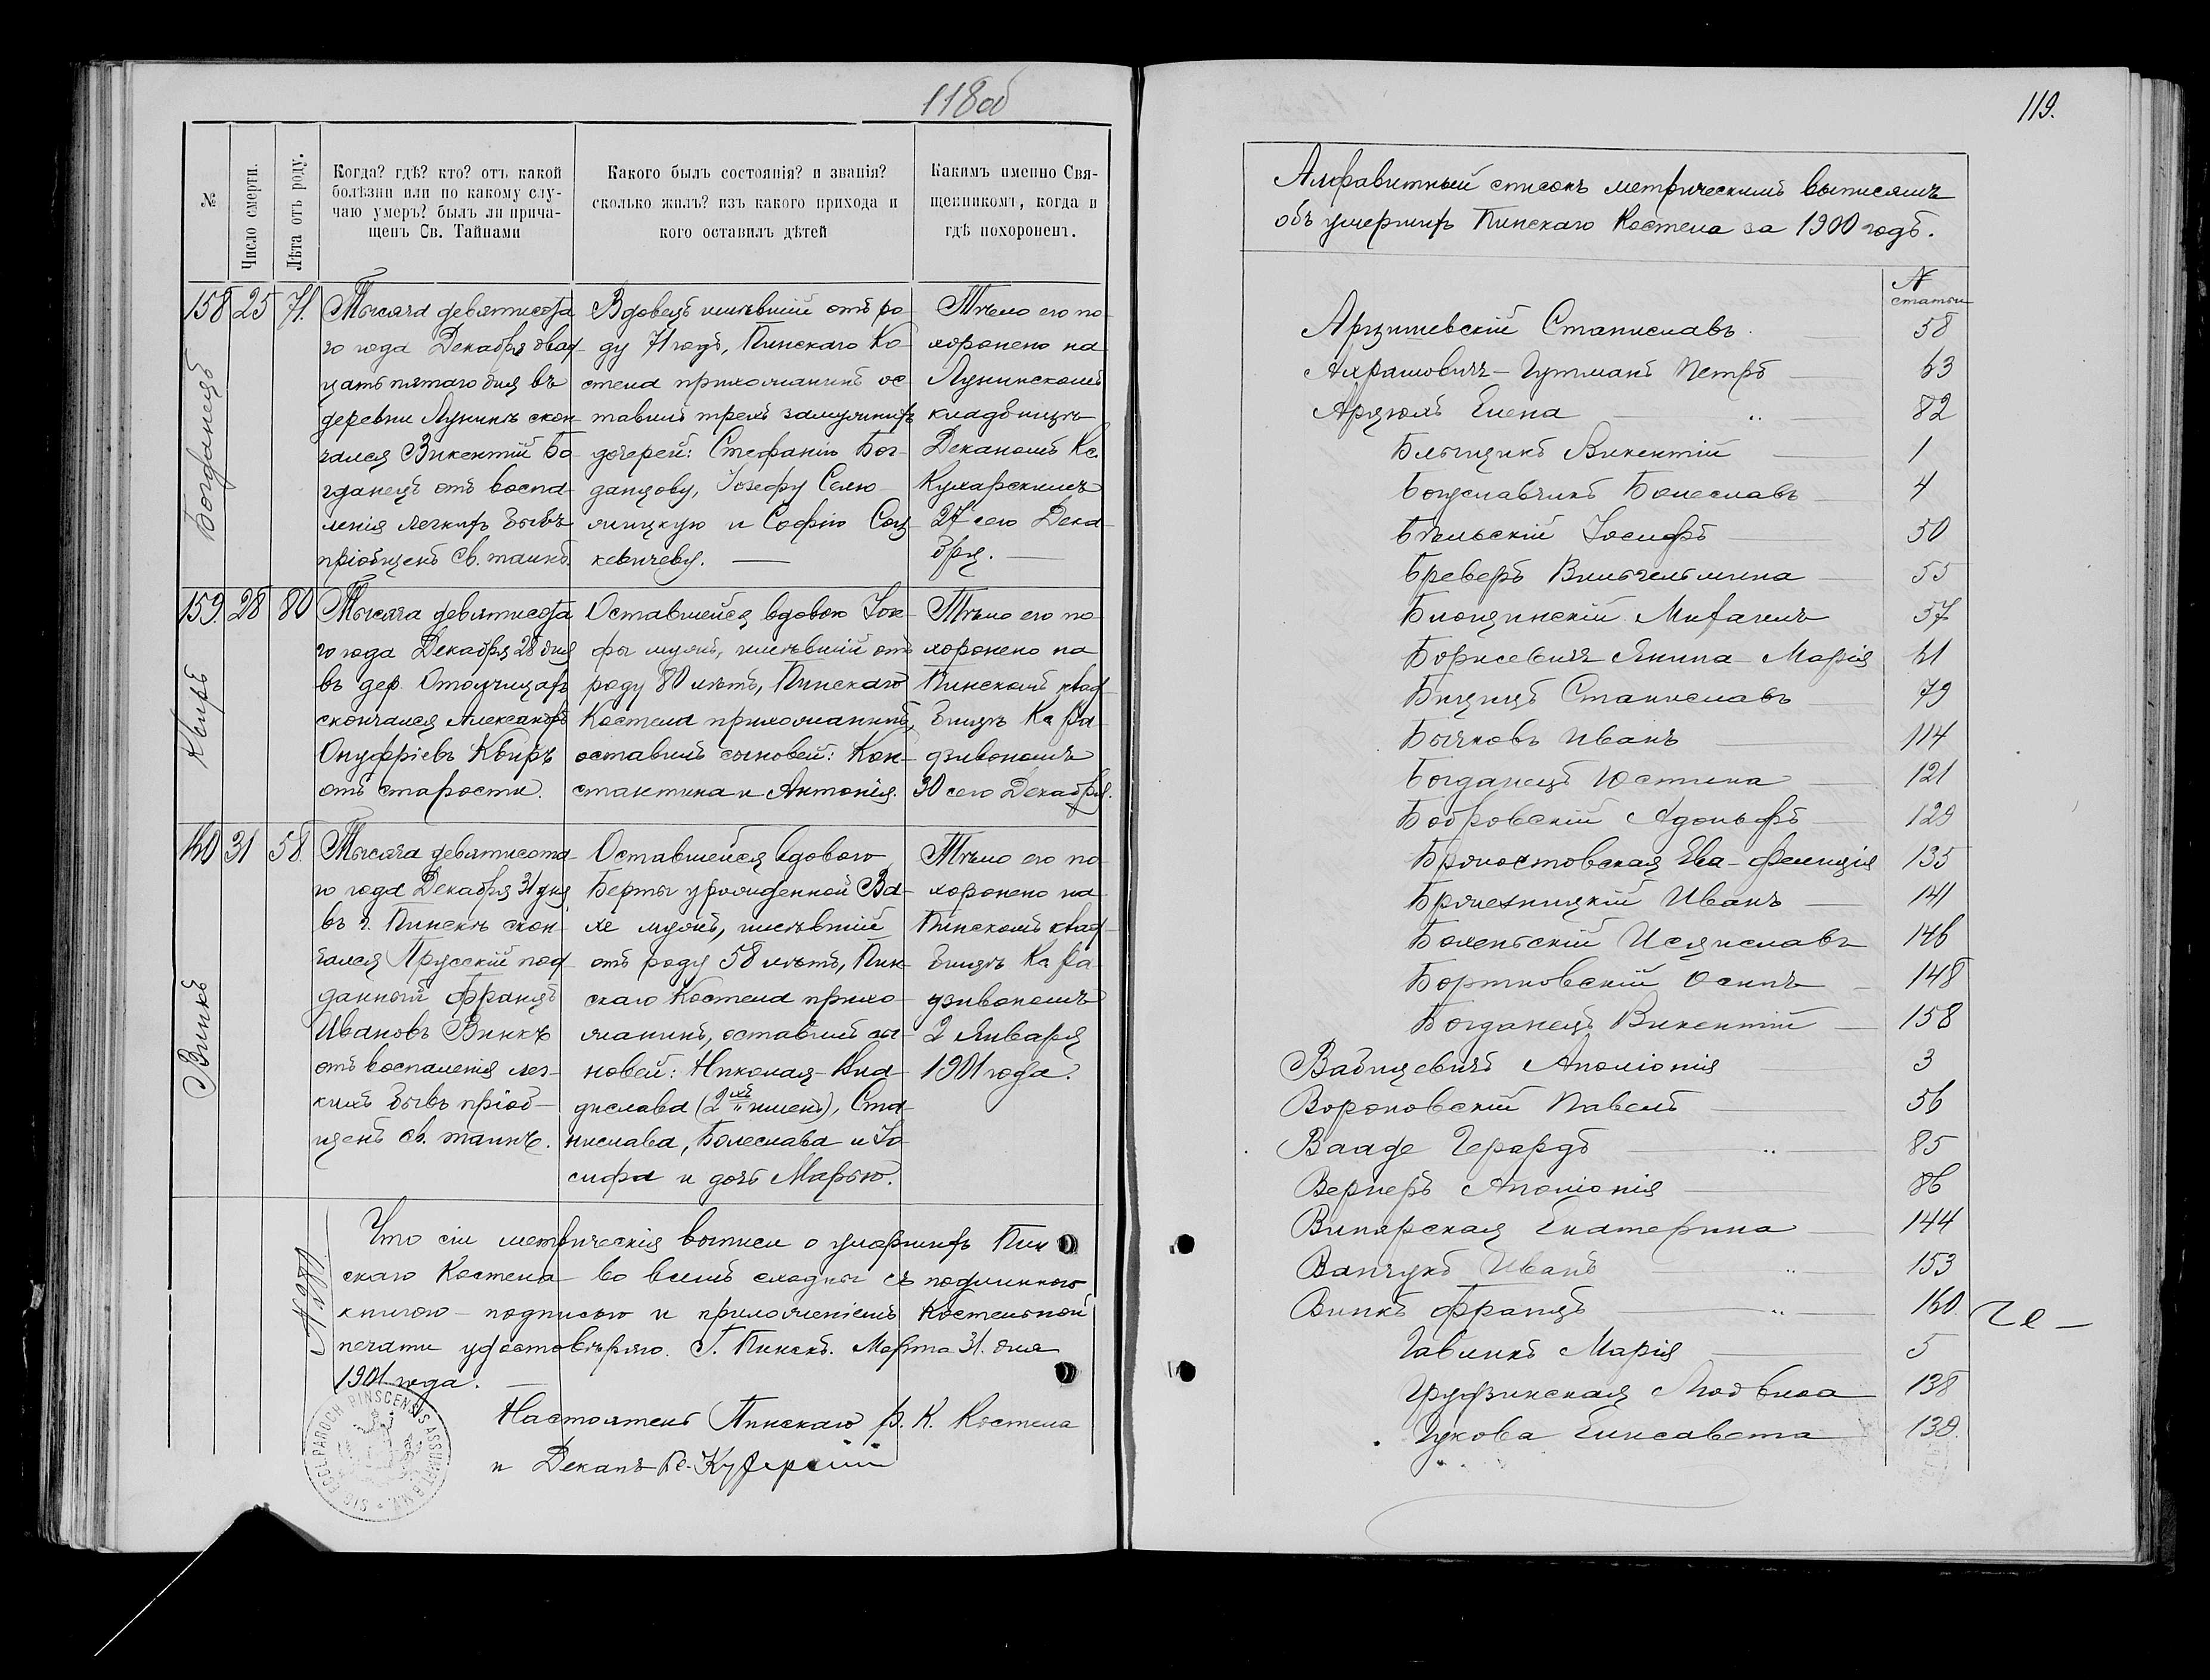 118об
№
Число смерти.
Лѣта отъ роду.
Когда? гдѣ? кто? отъ какой
болѣзни или по какому слу-
чаю умеръ? былъ ли прича-
щенъ Св. Тайнами
Какого былъ состоянія? и званія?
сколько жилъ? изъ какого прихода и
кого оставилъ дѣтей
Какимъ именно Свя-
щенникомъ, когда и
гдѣ похороненъ.
158 25 71.
Богданецъ
Тысяча девятисота
го года Декабря двад-
цать пятаго дня въ
деревни Лунинѣ скон-
чался Викентій Бо-
гданецъ отъ воспа-
ленія легкихъ бывъ
пріобщенъ Св. таинъ.
Вдовецъ имѣвшій отъ ро-
ду 71 годъ, Пинскаго Ко-
стела прихожанинъ ос-
тавилъ трехъ замужнихъ
дочерей: Стефанію Бог-
данцову, Іозефу
и Софію
кевичеву.
Тѣло его по-
хоронено на
Лунинскомъ
кладбищѣ
Деканомъ Кс.
Кухарскимъ
27 сего Дека-
бря.
159. 28 80
Квиръ
Тысяча девятисота
го года Декабря 28 дня
въ дер.
скончался Александръ
Онуфріевъ Квиръ
отъ старости.
Оставшейся вдовою Іозе-
фы мужъ, имѣвшій отъ
роду 80 лѣтъ, Пинскаго
Костела прихожанинъ,
оставилъ сыновей: Кон-
стантина и Антонія.
Тѣло его по-
хоронено на
Пинскомъ клад-
бищѣ Кс. Ра-
дзивономъ
30 сего Декабря.
160 31 58
Винкъ
Тысяча девятисота-
го года Декабря 31 дня
въ г. Пинскѣ скон-
чался Прусскій под-
данный Францъ
Ивановъ Винкъ
отъ воспаленія лег-
кихъ бывъ пріоб-
щенъ св. таинъ.
Оставшейся вдовою
Берты урожденной За-
хе мужъ, имѣвшій
отъ роду 58 лѣтъ, Пин-
скаго Костела прихо-
жанинъ, оставилъ сы-
новей: Николая-Вла-
дислава (2хъ именъ), Ста-
нислава, Болеслава и Іо-
сифа и дочь Марью.
Тѣло его по-
хоронено на
Пинскомъ клад-
бищѣ Кс. Ра-
дзивономъ
2 Января
1901 года.
Что сіи метрическія выписи о умершихъ Пин-
скаго Костела во всемъ сходны съ подлинною
книгою – подписью и приложеніемъ Костельной
печати удостовѣряю. Г. Пинскъ. Марта 31. дня
1901 года.
Настоятель Пинскаго Р. К. Костела
и Деканъ Кс. Кухарскій
SIG. ECCL. PAROCH. PINSCENSIS ASSUMPT. B.M.V.
119.
Алфавитный списокъ метрическимъ выписямъ
объ умершихъ Пинскаго Костела за 1900 годъ.
№
статьи
Арцишевскій Станиславъ 58
Ахрамовичъ-Гутманъ Петръ 63
Елена 82
Викентій 1
Богуславчикъ Болеславъ 4
Бѣльскій Іосифъ 50
Бреверъ Вильгельмина 55
Блощинскій Михаилъ 57
Борисевичъ Янина-Марія 61
Станиславъ 79
Бычковъ Иванъ 114
Богданецъ Юстина 121
Бобровскій Адольфъ 129
Бржостовская Ева-Фелиція 135
Иванъ 141
146
Бортновскій Осипъ 148
Богданецъ Викентій 158
Вабищевичъ Аполіонія 3
Вороновскій Павелъ 56
Вааде Герардъ 85
Вернеръ Аполіонія 86
Винярская Екатерина 144
Ванчукъ Иванъ 153
Винкъ Францъ 160
Гавликъ Марія 5
Грудзинская Людвика 138
Гукова Елисавета 139.